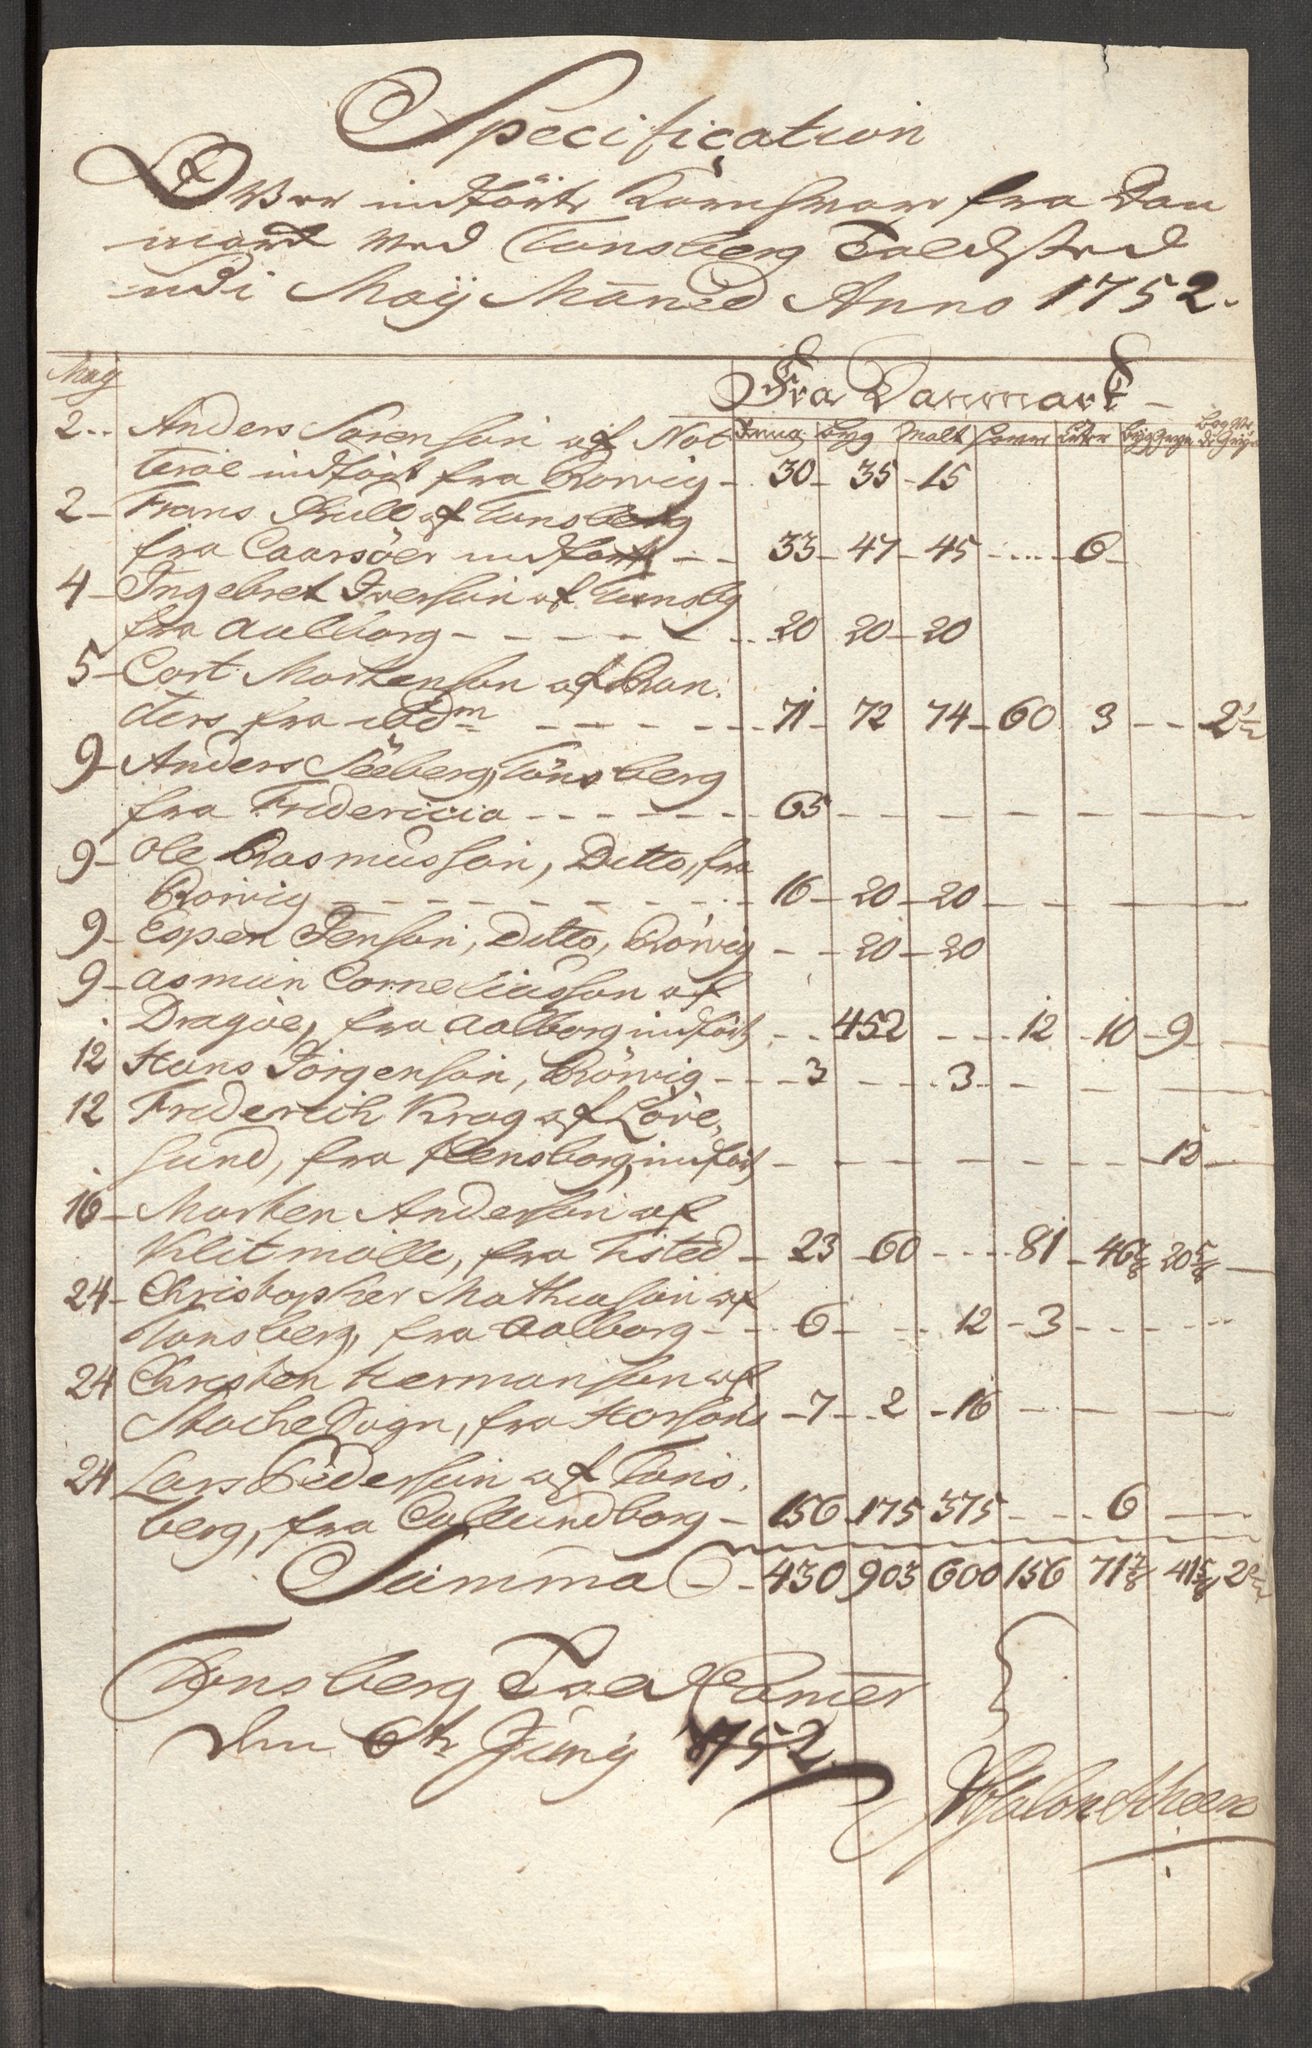 Specification
Over indförte Kornvare fra Dan
march ved Tonsberg Toldsted
udi Maÿ Måned Anno 1752.
May Fra Danmark
2 Anders Sörenson af Not Byg Malt Havre
teröe indfört fra Rörvig 30 35 15
2 Frans Krull af Tunsberg
fra Caarsöer indfört 33 47 45 6
4 Ingebret Iversön af Tunsbg
fra Aalborg 20 20 20
5 Cort Mortenson af Ran
ders fra ibdm 71 72 74 60 3 2½
9 Anders Seeberg, Tönsberg
fra Fridericia 65
9 Ole Rasmusson, Ditto, fra
Rörvig 16 20 20
9 Espen Jenson, Ditto, Rörvig 20 20
9 Asmun Corneliusson af
Dragöe, fra Aalborg indfört 452 12 10 9
12 Hans Jörgenson, Rörvig 3 3
12 Friderich Krag af Löve
sund, fra Flensborg, indfört 12
16 Morten Anderson af
Klitmölle, fra Tisted 23 60 81 46⅞ 20⅝
24 Christopher Mathiason af
Tonsberg, fra Aalborg 6 12 3
24 Christen Hermanson af
Stoche Sogn, fra Horsens 7 2 16
24 Lars Pederson af Tons
berg, fra Callundborg 156 175 375 6
Summa 430 903 600 156 71⅞ 41⅝ 2½
Tonsberg Told Camer
den 6te Junÿ 1752